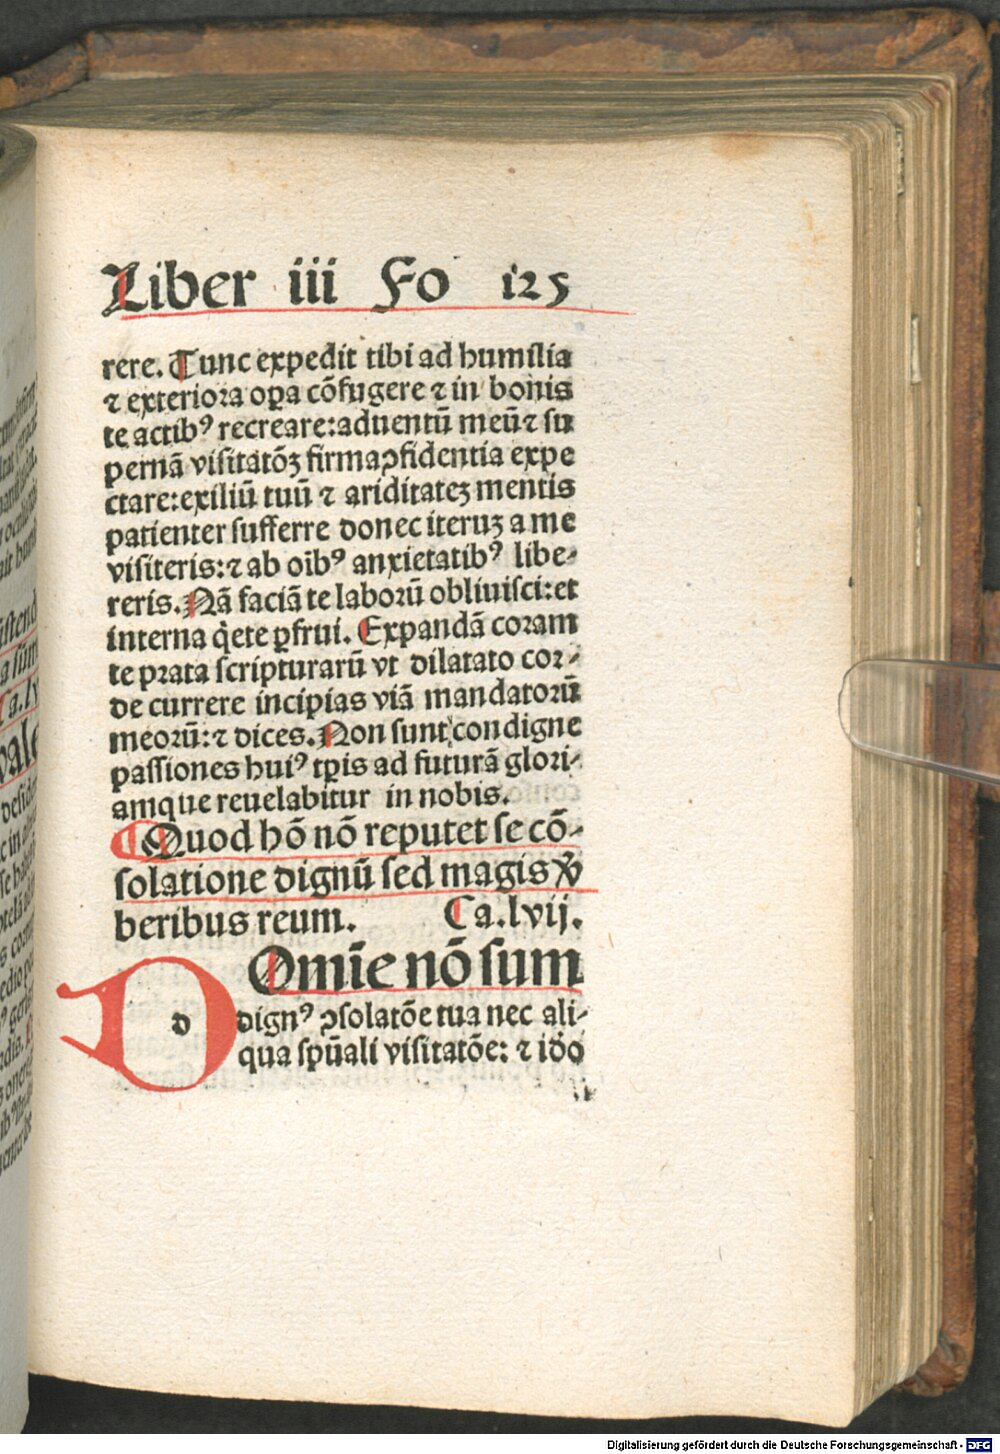 Liber iii Fo 125
rere. Tunc expedit tibi ad humilia
⁊ exteriora oꝑa cõfugere ⁊ in bonis
te actibꝰ recreare: aduentũ meũ ⁊ su
pernã visitatõꝫ firma ꝯfidentia expe
ctare: exiliũ tuũ ⁊ ariditateꝫ mentis
patienter sufferre donec iteruꝫ a me
visiteris: ⁊ ab oĩbꝰ anxietatibꝰ libe-
reris. Nã faciã te laborũ obliuisci: et
interna q̇ete ꝑfrui. Expandã coram
te prata scripturarũ vt dilatato cor-
de currere incipias viã mandatorũ
meorũ: ⁊ dices. Non sunt condigne
passiones huiꝰ tꝑis ad futurã glori-
am que reuelabitur in nobis.
Quod hõ nõ reputet se cõ-
solatione dignũ sed magis v̾
beribus reum. Ca. lvij.
d
Omĩe nõ sum
dignꝰ ꝯsolatõe tua nec ali-
qua spũali visitatõe: ⁊ iõo
Digitalisierung gefördert durch die Deutsche Forschungsgemeinschaft - DFG